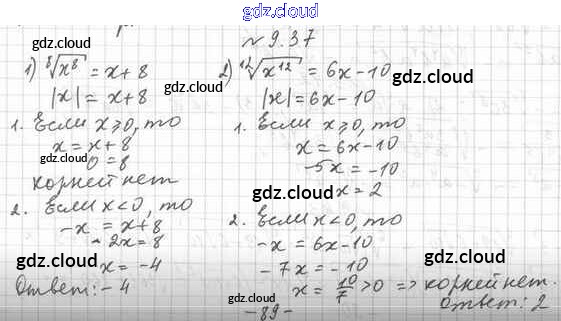 gdz.cloud
№ 9.37
1) ⁸√x⁸ = x+8
|x| = x+8
1. Если x≥0, то
x = x+8
0 = 8
корней нет
2. Если x<0, то
-x = x+8
-2x = 8
x = -4
Ответ: -4
2) ¹²√x¹² = 6x-10
|x| = 6x-10
1. Если x≥0, то
x = 6x-10
-5x = -10
x = 2
2. Если x<0, то
-x = 6x-10
-7x = -10
x = 10/7 >0 => корней нет.
Ответ: 2
-89-
gdz.cloud
gdz.cloud
gdz.cloud
gdz.cloud
gdz.cloud
gdz.cloud
gdz.cloud
gdz.cloud
gdz.cloud